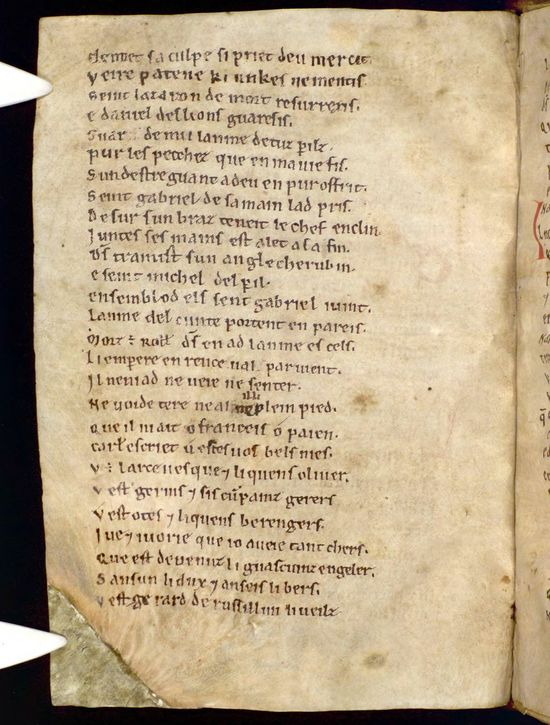 cleimet sa culpe si priet deu mercit
Veire patene ki unkes ne mentis.
seint lazaron de mort resurrexis.
e daniel des leons guaresis.
Guar de mei lanme de tuz perilz.
pur les pecchez que en ma vie fis.
Sun destre guant a deu en puroffrit.
Seint gabriel de sa main lad pris.
Desur sun braz teneit le chef enclin
Juntes ses mains est alet a sa fin.
ds̄ tramist sun angle cherubin.
e seint michel del peril.
ensembl od els sent gabriel i vint.
Lanme del cunte portent en pareis.
Morz ÷ roll̄. ds̄ en ad lanme es cels.
Li emꝑere en rencesvals parvient.
Il nen i ad ne veie ne senter.
Ne voide tere ne alne plein pied.
Que il ni ait o franceis o paien.
carles escriet u estes vos bels nies.
V ÷ larcevesque ⁊ li quens oliver.
V est gerins ⁊ sis cū̄painz gerers
V est otes ⁊ li quens berengers.
Ive ⁊ ivorie que io aveie tant chers.
Que est devenuz li guascuinz engeler.
Sansun li dux ⁊ anseis li bers.
V est gerard de russillun li veilz